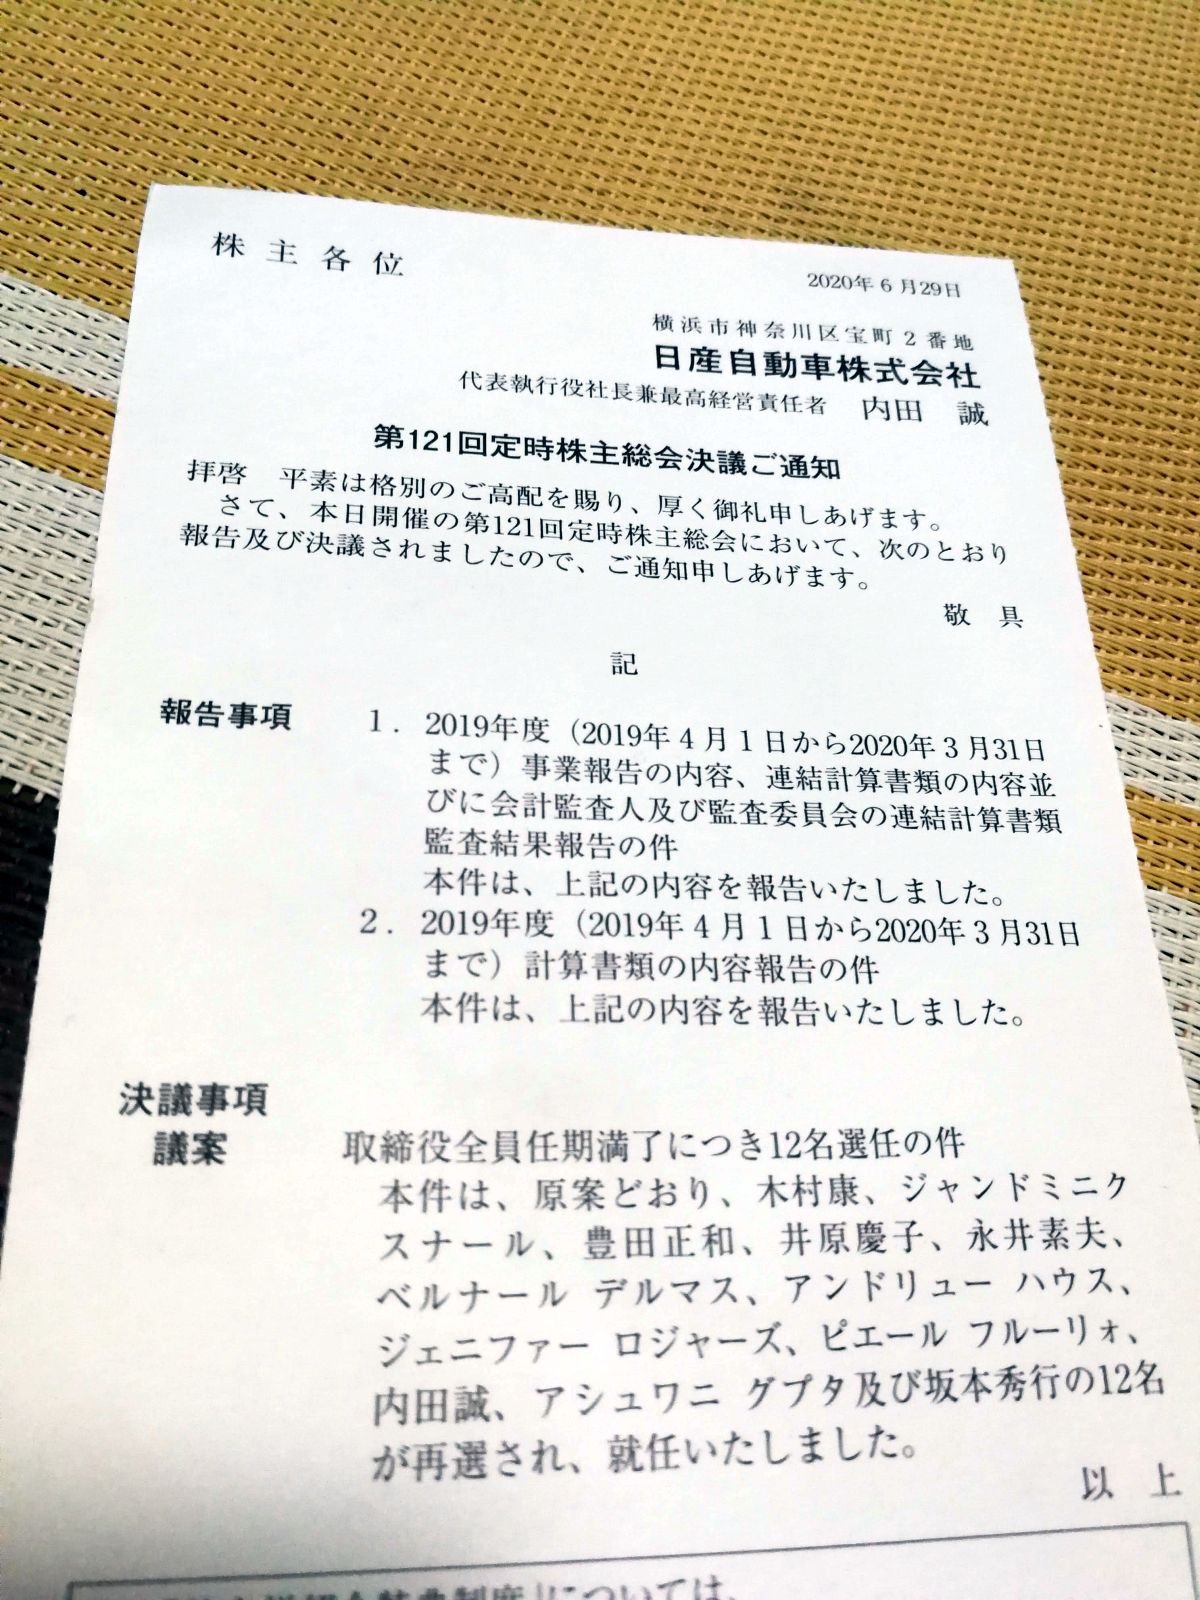 株主各位
2020年6月29日
横浜市神奈川区宝町2番地
日産自動車株式会社
代表執行役社長兼最高経営責任者 内田 誠
第121回定時株主総会決議ご通知
拝啓 平素は格別のご高配を賜り、厚く御礼申しあげます。
さて、本日開催の第121回定時株主総会において、次のとおり
報告及び決議されましたので、ご通知申しあげます。
敬 具
記
報告事項 1. 2019年度(2019年4月1日から2020年3月31日
まで)事業報告の内容、連結計算書類の内容並
びに会計監査人及び監査委員会の連結計算書類
監査結果報告の件
本件は、上記の内容を報告いたしました。
2. 2019年度(2019年4月1日から2020年3月31日
まで)計算書類の内容報告の件
本件は、上記の内容を報告いたしました。
決議事項
議案 取締役全員任期満了につき12名選任の件
本件は、原案どおり、木村康、ジャンドミニク
スナール、豊田正和、井原慶子、永井素夫、
ベルナール デルマス、アンドリュー ハウス、
ジェニファー ロジャーズ、ピエール フルーリォ、
内田誠、アシュワニ グプタ及び坂本秀行の12名
が再選され、就任いたしました。
以 上
制度」については、